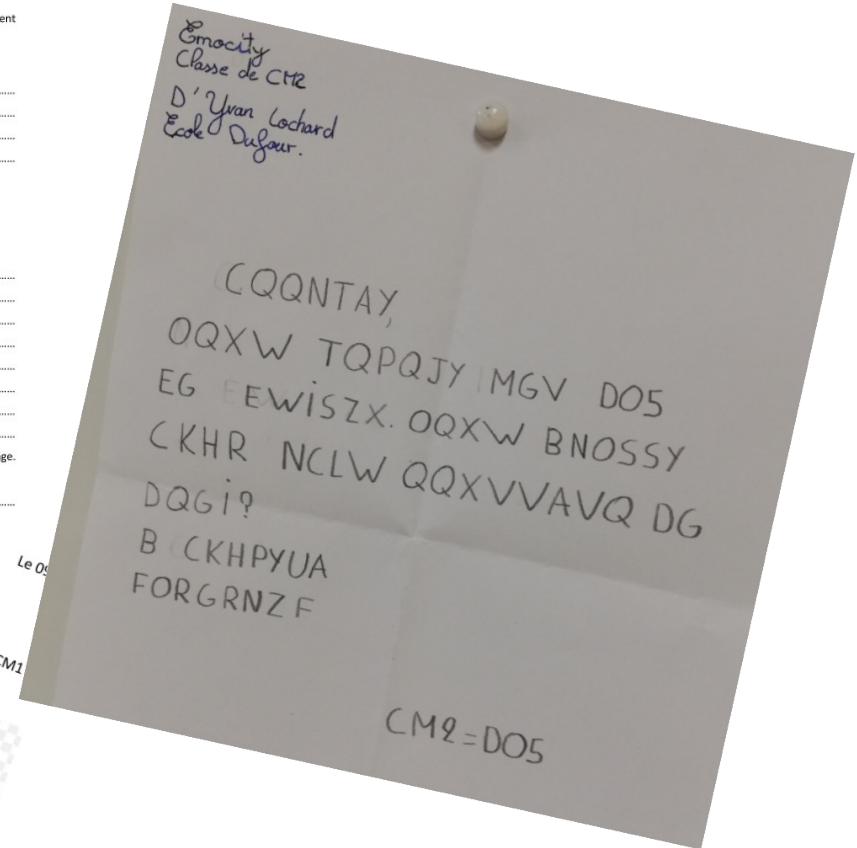 ent
Emocity
Classe de CM2
D'Yvan Lochard
Ecole Dufour.
CQQNTAY,
OQXW TQPQJY MGV DO5
EG EWiSZX. OQXW BNOSSY
CKHR NCLW QQXVVAVQ DG
DQGi?
B CKHPYUA
FORGRNZF
CM2=DO5
ge.
Le 09
CM1